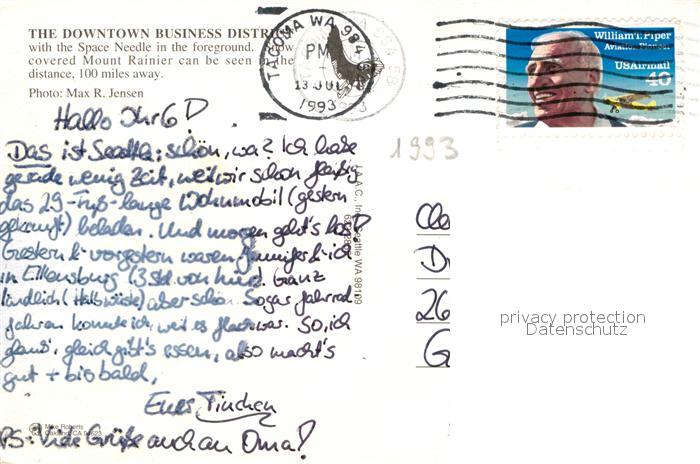 THE DOWNTOWN BUSINESS DISTRI
with the Space Needle in the foreground. Snow
covered Mount Rainier can be seen in the
distance, 100 miles away.
Photo: Max R. Jensen
TACOMA WA 984
PM
13 JUL
1993
William T. Piper
Aviation Pioneer
USAirmail
40
1993
Hallo Ihr 6!
Das ist Seattle: schön, wa? Ich habe
gerade wenig Zeit, weil wir schon fleißig
das 29-Fuß-lange Wohnmobil (gestern
gekauft) beladen. Und morgen geht's los!
Gestern & vorgestern waren Jennifer & ich
in Ellensburg (3 Std. von hier). Ganz
ländlich (Halbwüste) aber schön. Sogar Fahrrad
fahren konnte ich, weil es flach war. So, ich
glaub', gleich gibt's essen, also macht's
gut + bis bald,
Eure Tinchen
PS: Viele Grüße auch an Oma!
Mike Roberts
Oakland, CA 94623
Seattle WA 98109
26
privacy protection
Datenschutz